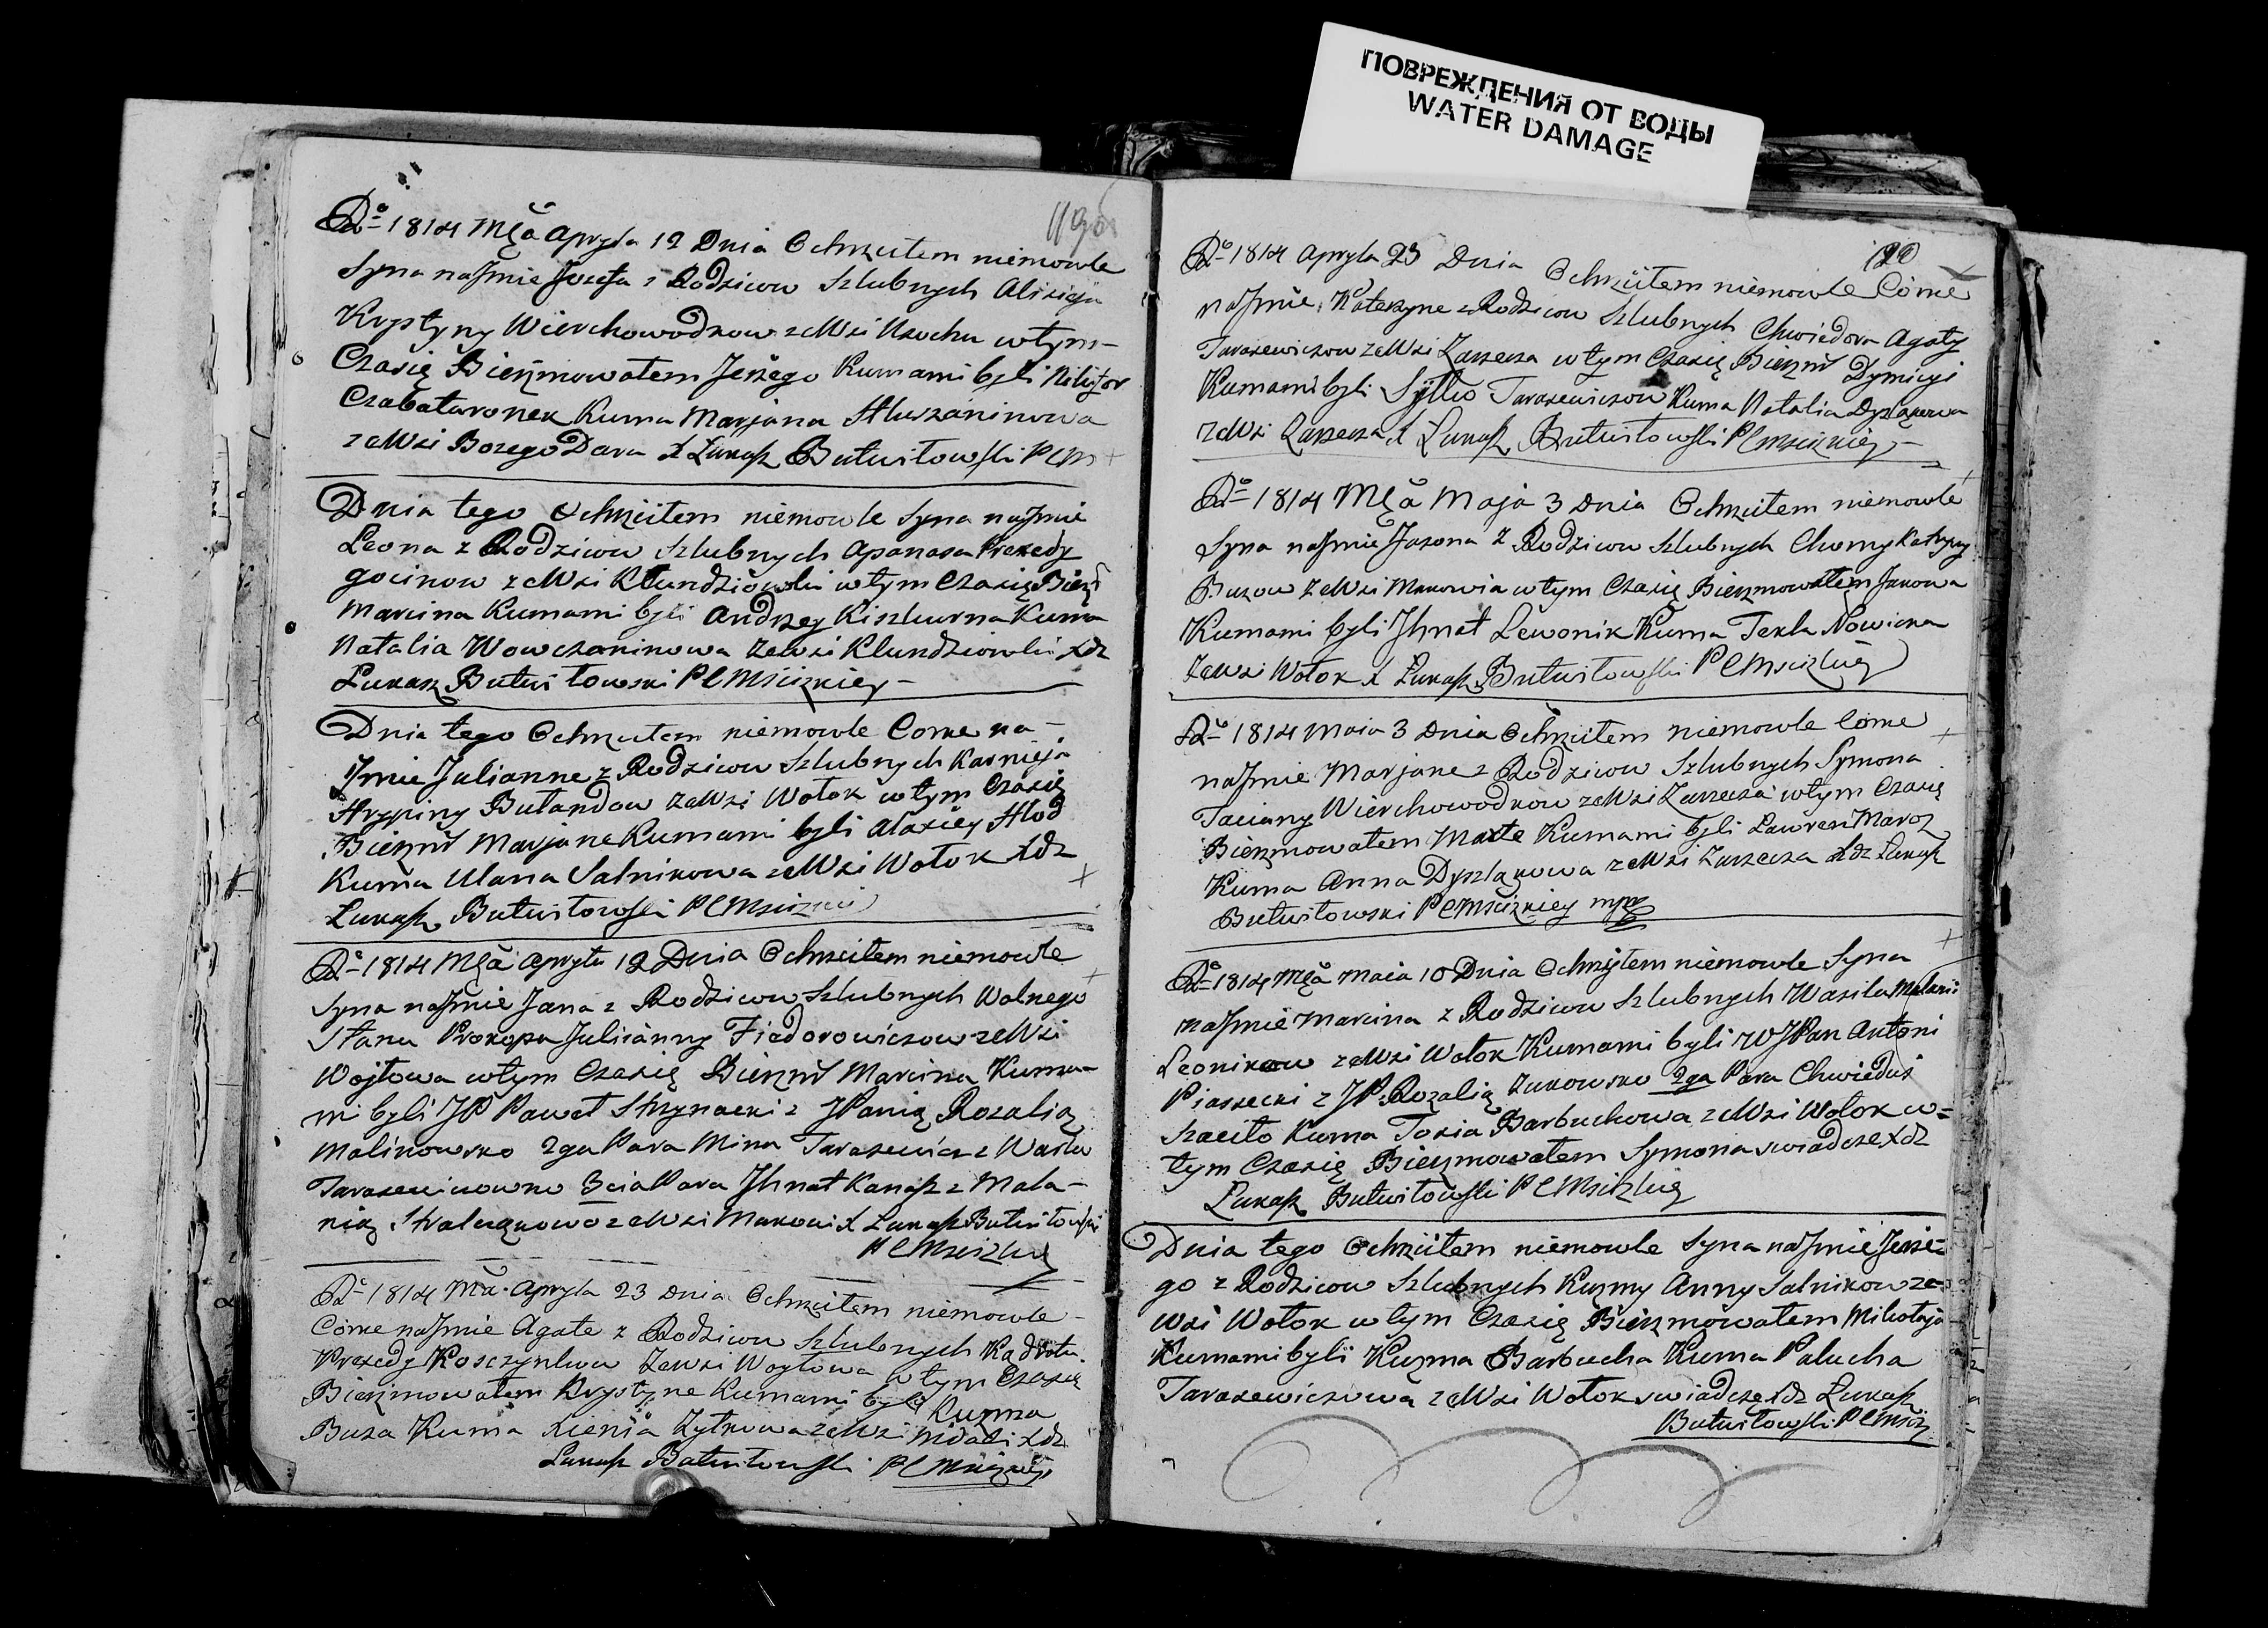 ПОВРЕЖДЕНИЯ ОТ ВОДЫ
WATER DAMAGE
119об
Rº 1814 Mca Apryla 12 Dnia Ochrzciłem niemowle
Syna na Jmie Jozefa z Rodzicow Szlubnych Alixieja
Krystyny Wierchowodkow ze Wsi Uzochu w tym
Czasię Bierzmowałem Jerzego Kumami byli
Czabataronek Kuma Marjana Hluszaninowa
ze Wsi Bozego Dara X Łukasz Butwiłowski PCM
Dnia tego Ochrzciłem niemowle Syna na Jmie
Leona z Rodzicow Szlubnych Apanasa Praxedy
gocinow ze Wsi Kłundziowki w tym Czasię Bierz
Marcina Kumami byli Andrzey Kiszkurna Kuma
Natalia Wowczaninowa ze Wsi Klundziowki Xdz
Łukasz Butwiłowski PCMscizkiey
Dnia tego Ochrzciłem niemowle Corke na
Jmie Julianne z Rodzicow Szlubnych Karnieja
Hrypiny Bułandow ze Wsi Wołok w tym Czasię
Bierzm Marjane Kumami byli Alaxiey Hłod
Kuma Ulana Salnikowa ze Wsi Wołok Xdz
Łukasz Butwiłowski PCMscizkiey
Rº 1814 Mca Apryla 12 Dnia Ochrzciłem niemowle
Syna na Jmie Jana z Rodzicow Szlubnych Wolnego
Stanu Prokopa Julianny Fiedorowiczow ze Wsi
Wojtowa w tym Czasię Bierzm Marcina Kuma-
mi byli JP Paweł Strzynacki z JPanią Rozalią
Malinowsko 2ga Para Mina Tarasewicz z Warku
Tarasewiczowno 3cia Para Jhnat Kanasz z Mała-
nią ze Wsi Makowi X Łukasz Butwiłowski
PCMscizkiey
Rº 1814 Mca Apryla 23 Dnia Ochrzciłem niemowle
Corke na Jmie Agate z Rodzicow Szlubnych Kadrata
Praxedy ze Wsi Woytowa w tym Czasię
Bierzmowałem Krystyne Kumami byli Kuzma
Buza Kuma Xienia Zytkowa ze Wsi Xdz
Łukasz Butwiłowski PCMscizkiey
120
Rº 1814 Apryla 23 Dnia Ochrzciłem niemowle Corke
na Jmie Katerzyne z Rodzicow Szlubnych Chwiedora Agaty
Tarasewiczow ze Wsi Zarzecza w tym Czasię Bierzm Dymicyi
Kumami byli Syłko Tarasewiczow Kuma Natalia Dyszlakowa
ze Wsi Zarzecza X Łukasz Butwiłowski PCMscizkiey
Rº 1814 Mca Maja 3 Dnia Ochrzciłem niemowle
Syna na Jmie Jazona z Rodzicow Szlubnych Chomy Katrzyny
Buzow ze Wsi Makowia w tym Czasię Bierzmowałem Jakowa
Kumami byli Jhnat Lewonik Kuma Tekla Nowicka
ze Wsi Wołok X Łukasz Butwiłowski PCMscizkiey
Rº 1814 Maia 3 Dnia Ochrzciłem niemowle Corke
na Jmie Marjane z Rodzicow Szlubnych Symona
Taciany Wierchowodkow ze Wsi Zarzecza w tym Czasię
Bierzmowałem Marte Kumami byli Ławren Maroz
Kuma Anna Dyszlakowa ze Wsi Zarzecza Xdz Łukasz
Butwiłowski PCMscizkiey mpr
Rº 1814 Mca Maia 10 Dnia Ochrzyłem niemowle Syna
na Jmie Marcina z Rodzicow Szlubnych Wasila Malanii
Leonikow ze Wsi Wołok Kumami byli WJPan Antoni
Piasecki z JP Rozalią Zukowsko 2ga Para Chwiedus
Szaciło Kuma Tosia Barbuchowa ze Wsi Wołok w=
tym Czasię Bierzmowałem Symona swiadcze Xdz
Łukasz Butwiłowski PCMscizkiey
Dnia tego Ochrzciłem niemowle Syna na Jmie Jerze=
go z Rodzicow Szlubnych Kuzmy Anny Salnikow ze=
Wsi Wołok w tym Czasię Bierzmowałem Mikołaja
Kumami byli Kuzma Barbucha Kuma Palucha
Tarasewiczowa ze Wsi Wołok swiadczę Xdz Łukasz
Butwiłowski PCMsciz